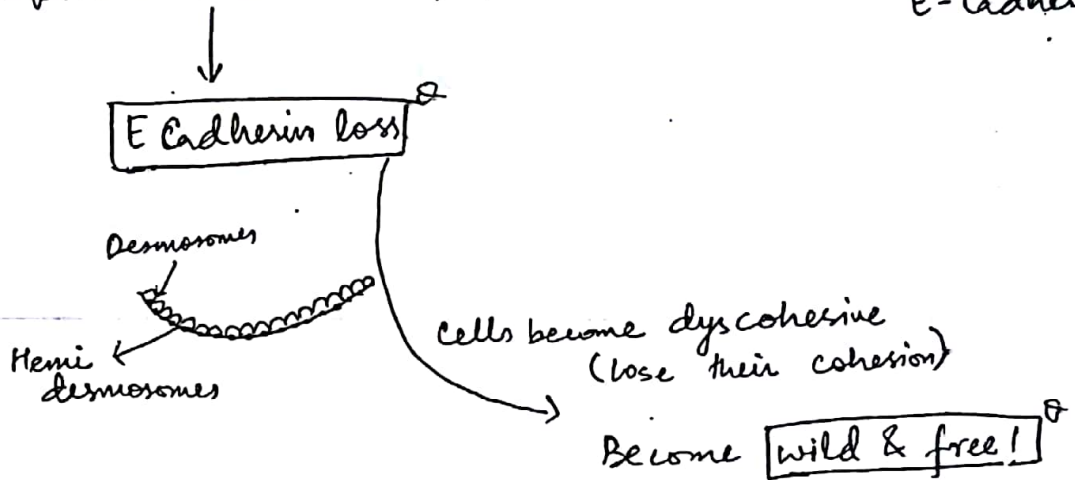 E Cadherin loss
Desmosomes
Hemi
desmosomes
Cells become dyscohesive
(lose their cohesion)
Become wild & free!